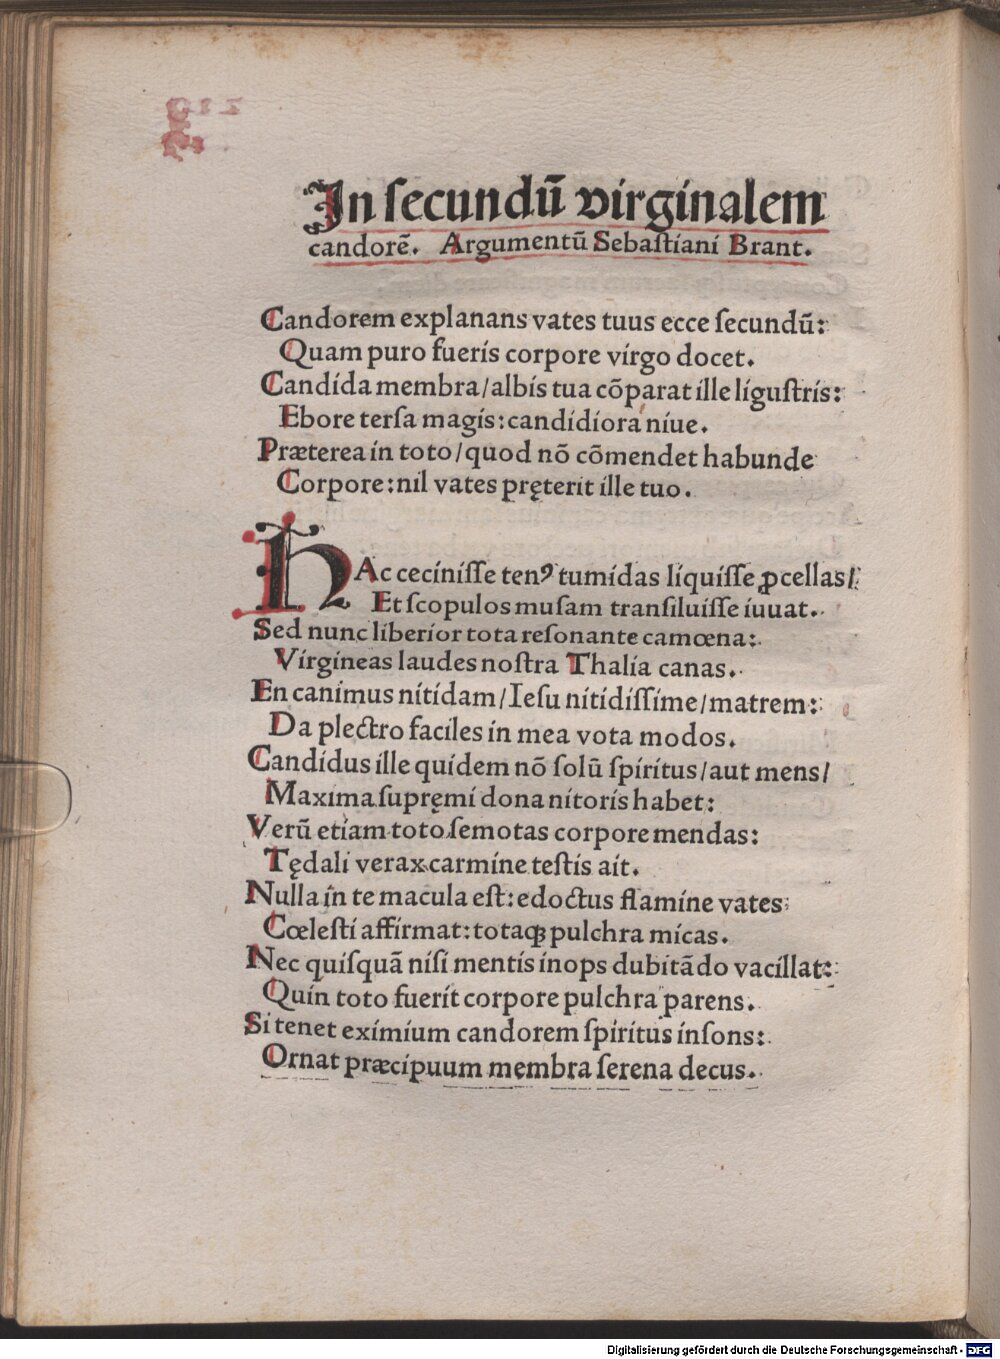 In ſecundū virginalem
candorē. Argumentū Sebaſtiani Brant.
Candorem explanans vates tuus ecce ſecundū:
Quam puro fueris corpore virgo docet.
Candida membra/albis tua cōparat ille liguſtris:
Ebore terſa magis: candidiora niue.
Præterea in toto/quod nō cōmendet habunde
Corpore: nil vates pręterit ille tuo.
HAc ceciniſſe tenꝰ tumidas liquiſſe ꝓcellas/
Et ſcopulos muſam tranſiluiſſe iuuat.
Sed nunc liberior tota reſonante camœna:
Virgineas laudes noſtra Thalia canas.
En canimus nitidam/Ieſu nitidiſſime/matrem:
Da plectro faciles in mea vota modos.
Candidus ille quidem nō ſolū ſpiritus/aut mens/
Maxima ſupręmi dona nitoris habet:
Verū etiam toto ſemotas corpore mendas:
Tędali verax carmine teſtis ait.
Nulla in te macula eſt: edoctus flamine vates
Cœleſti affirmat: totaqꝫ pulchra micas.
Nec quiſquā niſi mentis inops dubitādo vacillat:
Quin toto fuerit corpore pulchra parens.
Si tenet eximium candorem ſpiritus inſons:
Ornat præcipuum membra ſerena decus.
Digitalisierung gefördert durch die Deutsche Forschungsgemeinschaft - DFG